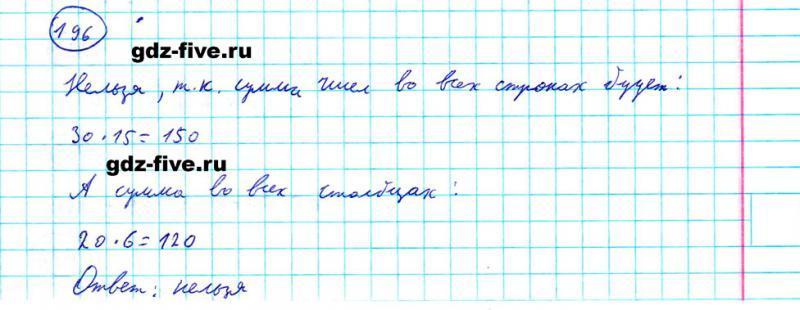 196
gdz-five.ru
Нельзя, т.к. сумма чисел во всех строках будет:
30 · 15 = 150
gdz-five.ru
А сумма во всех столбцах:
20 · 6 = 120
Ответ: нельзя